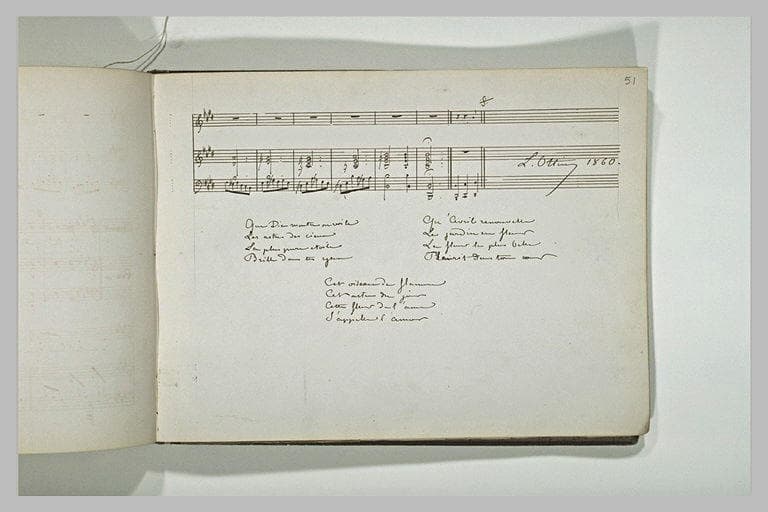 51
L. Otten 1860.
Que Dieu montre ou voile
Les astres des cieux
La plus pure étoile
Brille dans tes yeux
Qu'Avril renouvelle
Le jardin en fleur
La fleur la plus belle
Fleurit dans ton cœur
Cet oiseau de flamme
Cet astre du jour
Cette fleur de l'ame
S'appelle l'amour